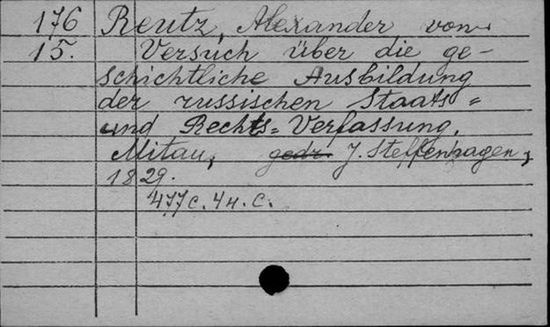 176 Reutz, Alexander von
15. Versuch über die ge-
schichtliche Ausbildung
der russischen Staats=
und Rechts=Verfassung.
Mitau, gedr. J. Steffenhagen,
1829.
477 c. 4 н. c.